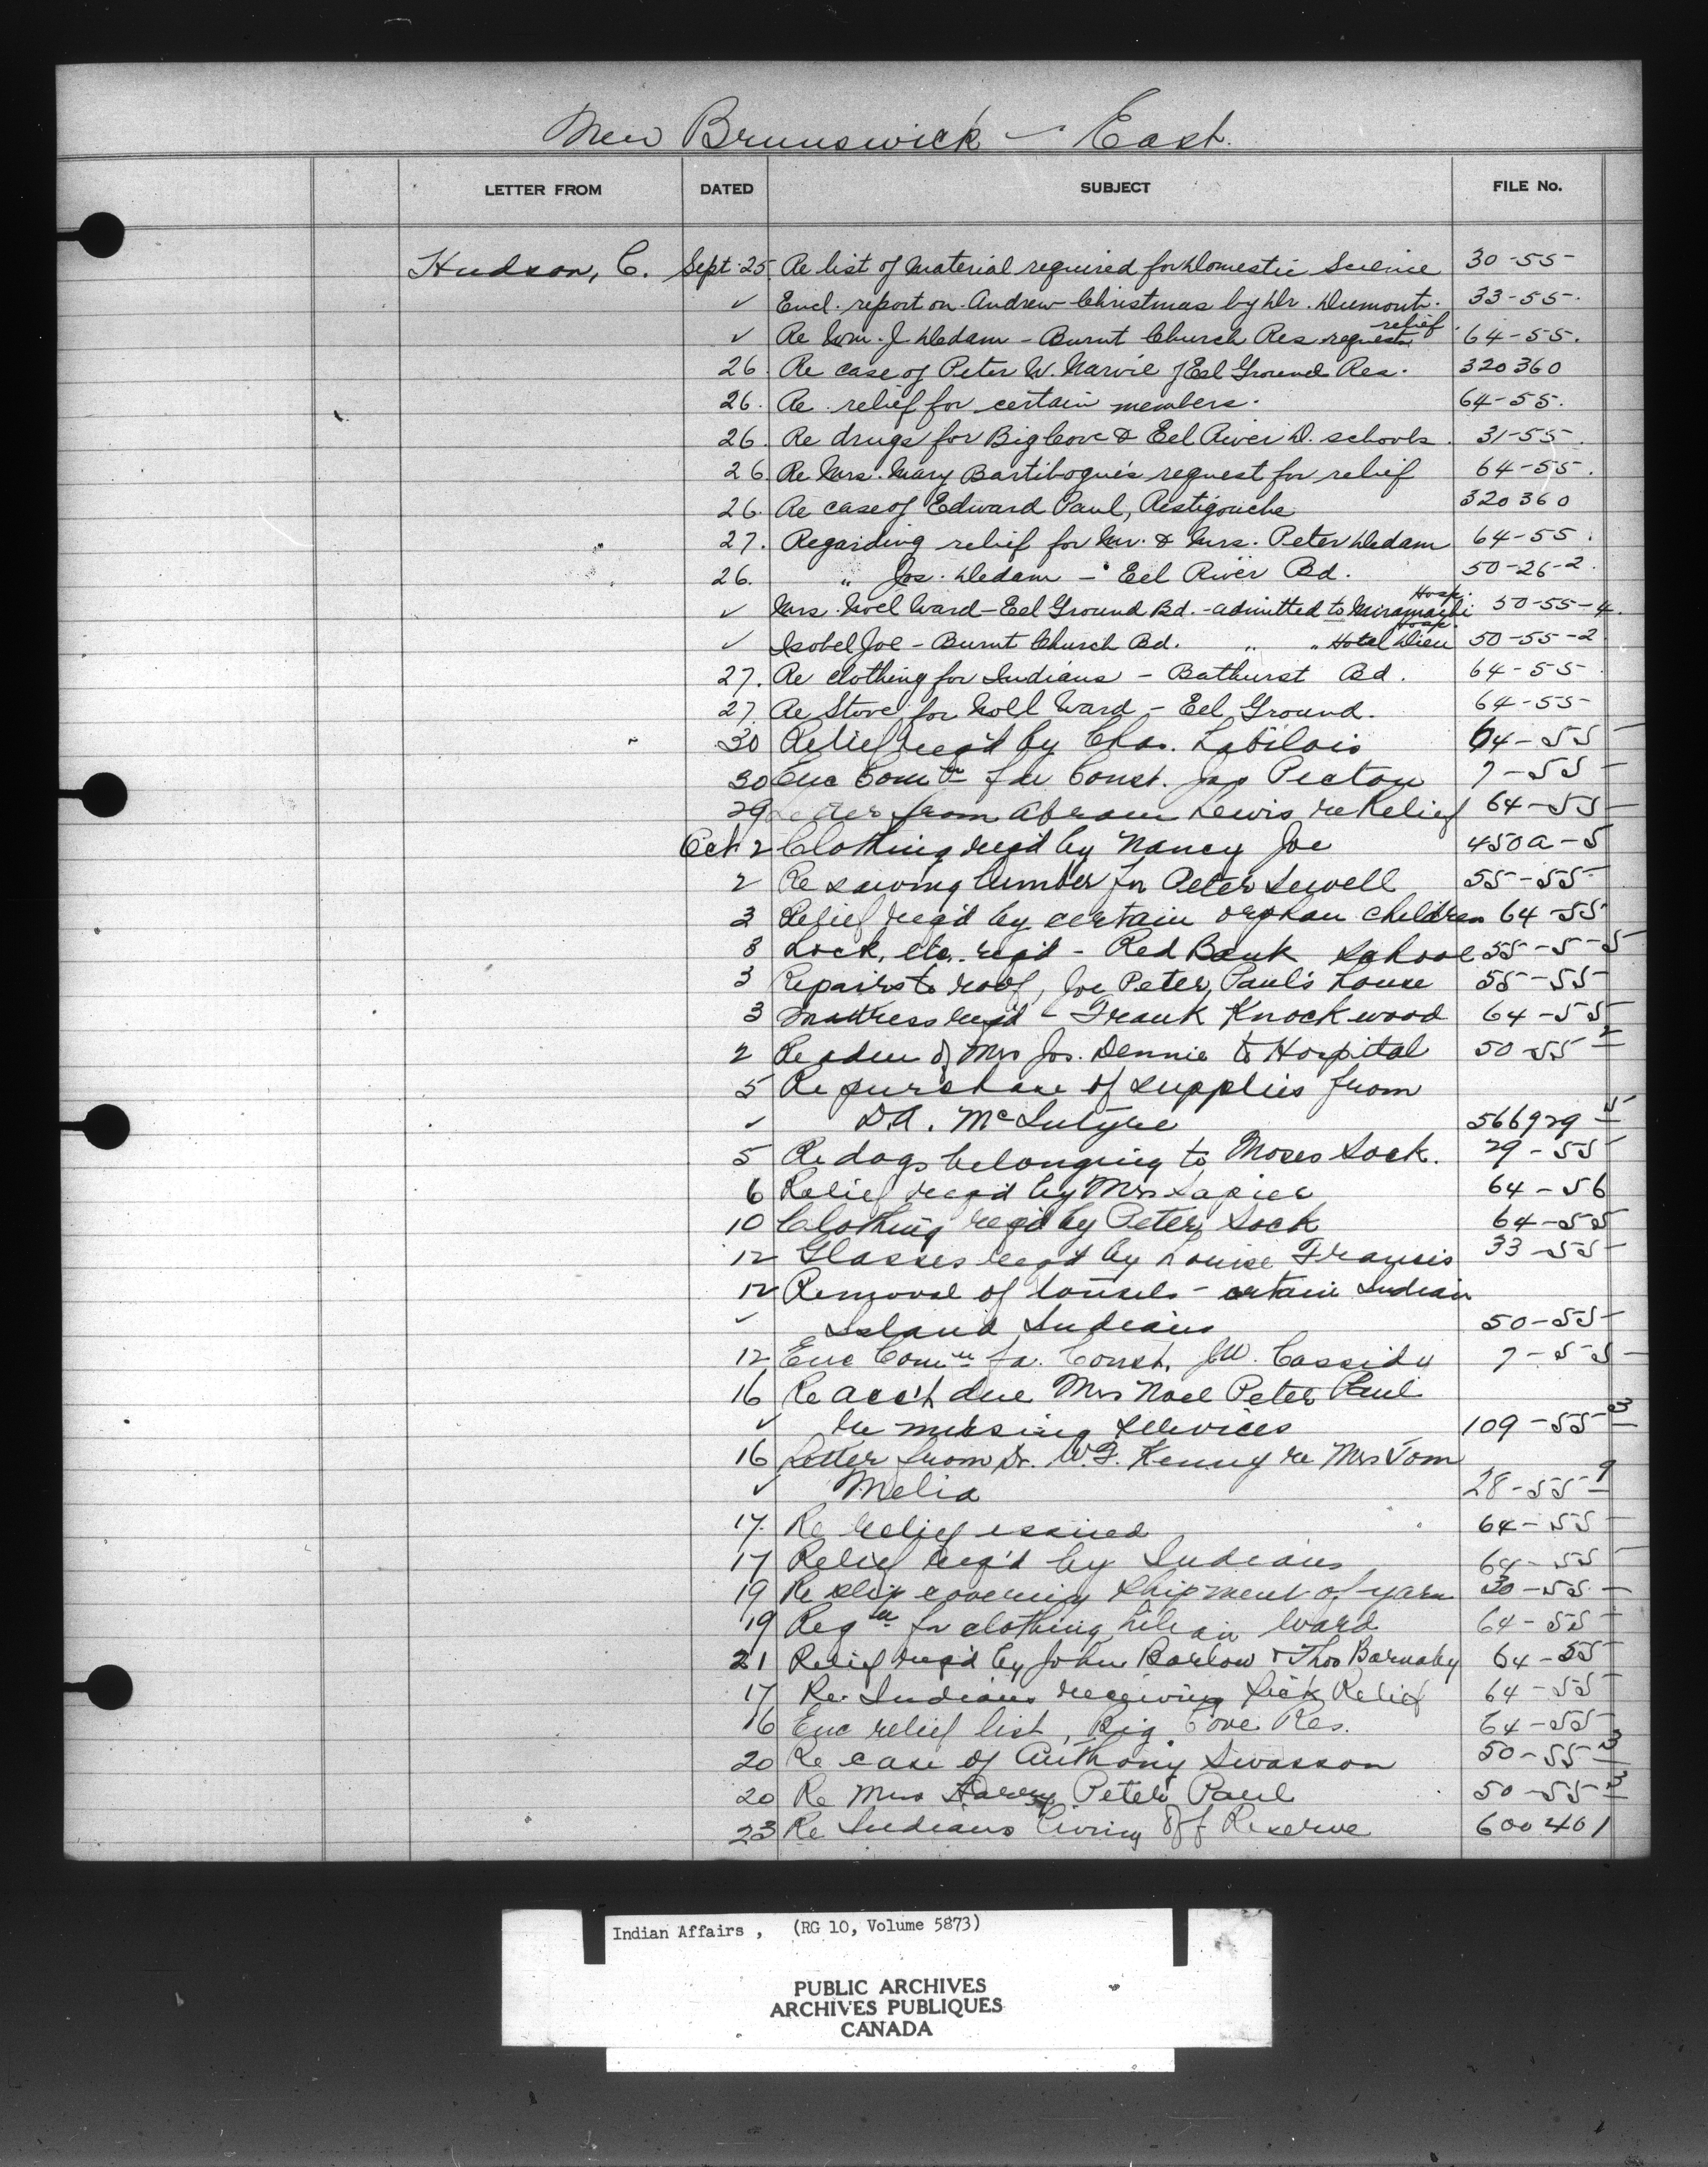 New Brunswick - East.
LETTER FROM DATED SUBJECT FILE No.
Hudson, C. Sept. 25 Re list of Material required for Domestic Science 30-55
✓ Encl. report on Andrew Christmas by Dr. Dumont. 33-55.
✓ Re Wm. J. Dedam - Burnt Church Res requests relief. 64-55.
26. Re case of Peter W. Narvie of Eel Ground Res. 320360
26. Re relief for certain members. 64-55.
26. Re drugs for Big Cove & Eel River D. schools. 31-55.
26. Re Mrs. Mary Bartibogue's request for relief 64-55.
26. Re case of Edward Paul, Restigouche 320360
27. Regarding relief for Mr. & Mrs. Peter Dedam 64-55.
26. " Jos. Dedam - Eel River Bd. 50-26-2.
✓ Mrs. Noel Ward - Eel Ground Bd. - admitted to Miramachi Hosp. 50-55-4.
✓ Isobel Joe - Burnt Church Bd. " " Hotel Dieu Hosp. 50-55-2
27. Re clothing for Indians - Bathurst Bd. 64-55.
27. Re Stove for Noll Ward - Eel Ground. 64-55
30 Relief req'd by Chas. Labilois 64-55
30 Enc Com'n for Const. Jas Picton 7-55
29 Letter from Abram Lewis re Relief 64-55
Oct 2 Clothing req'd by Nancy Joe 450a-5
2 Re sawing lumber for Peter Sewell 55-55
3 Relief req'd by certain orphan children 64-55
3 Lock, etc. req'd - Red Bank School 55-5-5
3 Repairs to roof, Joe Peter Paul's house 55-55
3 Mattress req'd - Frank Knockwood 64-55
2 Re adm of Mrs Jos. Dennie to Hospital 50-55-2
5 Re purchase of supplies from
✓ D.A. McIntyre 566929-5
5 Re dogs belonging to Moses Sock. 29-55
6 Relief req'd by Mrs Lapier 64-56
10 Clothing req'd by Peter Sock 64-55
12 Glasses req'd by Louise Francis 33-55
12 Removal of tonsils - certain Indian
✓ Island Indians 50-55
12 Enc Com'n fa. Const. J.W. Cassidy 7-55
16 Re acc't due Mrs Noel Peter Paul
✓ re nursing services 109-55-3
16 Letter from Dr. W.F. Kenny re Mrs Tom
✓ Melia 28-55-9
17. Re relief issued 64-55
17 Relief req'd by Indians 64-55
19 Re slip covering shipment of yarn 30-55
19 Reqn for clothing Lilian Ward 64-55
21 Relief req'd by John Barlow & Thos Barnaby 64-55
17 Re. Indians receiving Sick Relief 64-55
16 Enc relief list, Big Cove Res. 64-55
20 Re case of Anthony Swasson 50-55-3
20 Re Mrs Harry Peter Paul 50-55-3
23 Re Indians living Off Reserve 600401
Indian Affairs, (RG 10, Volume 5873)
PUBLIC ARCHIVES
ARCHIVES PUBLIQUES
CANADA